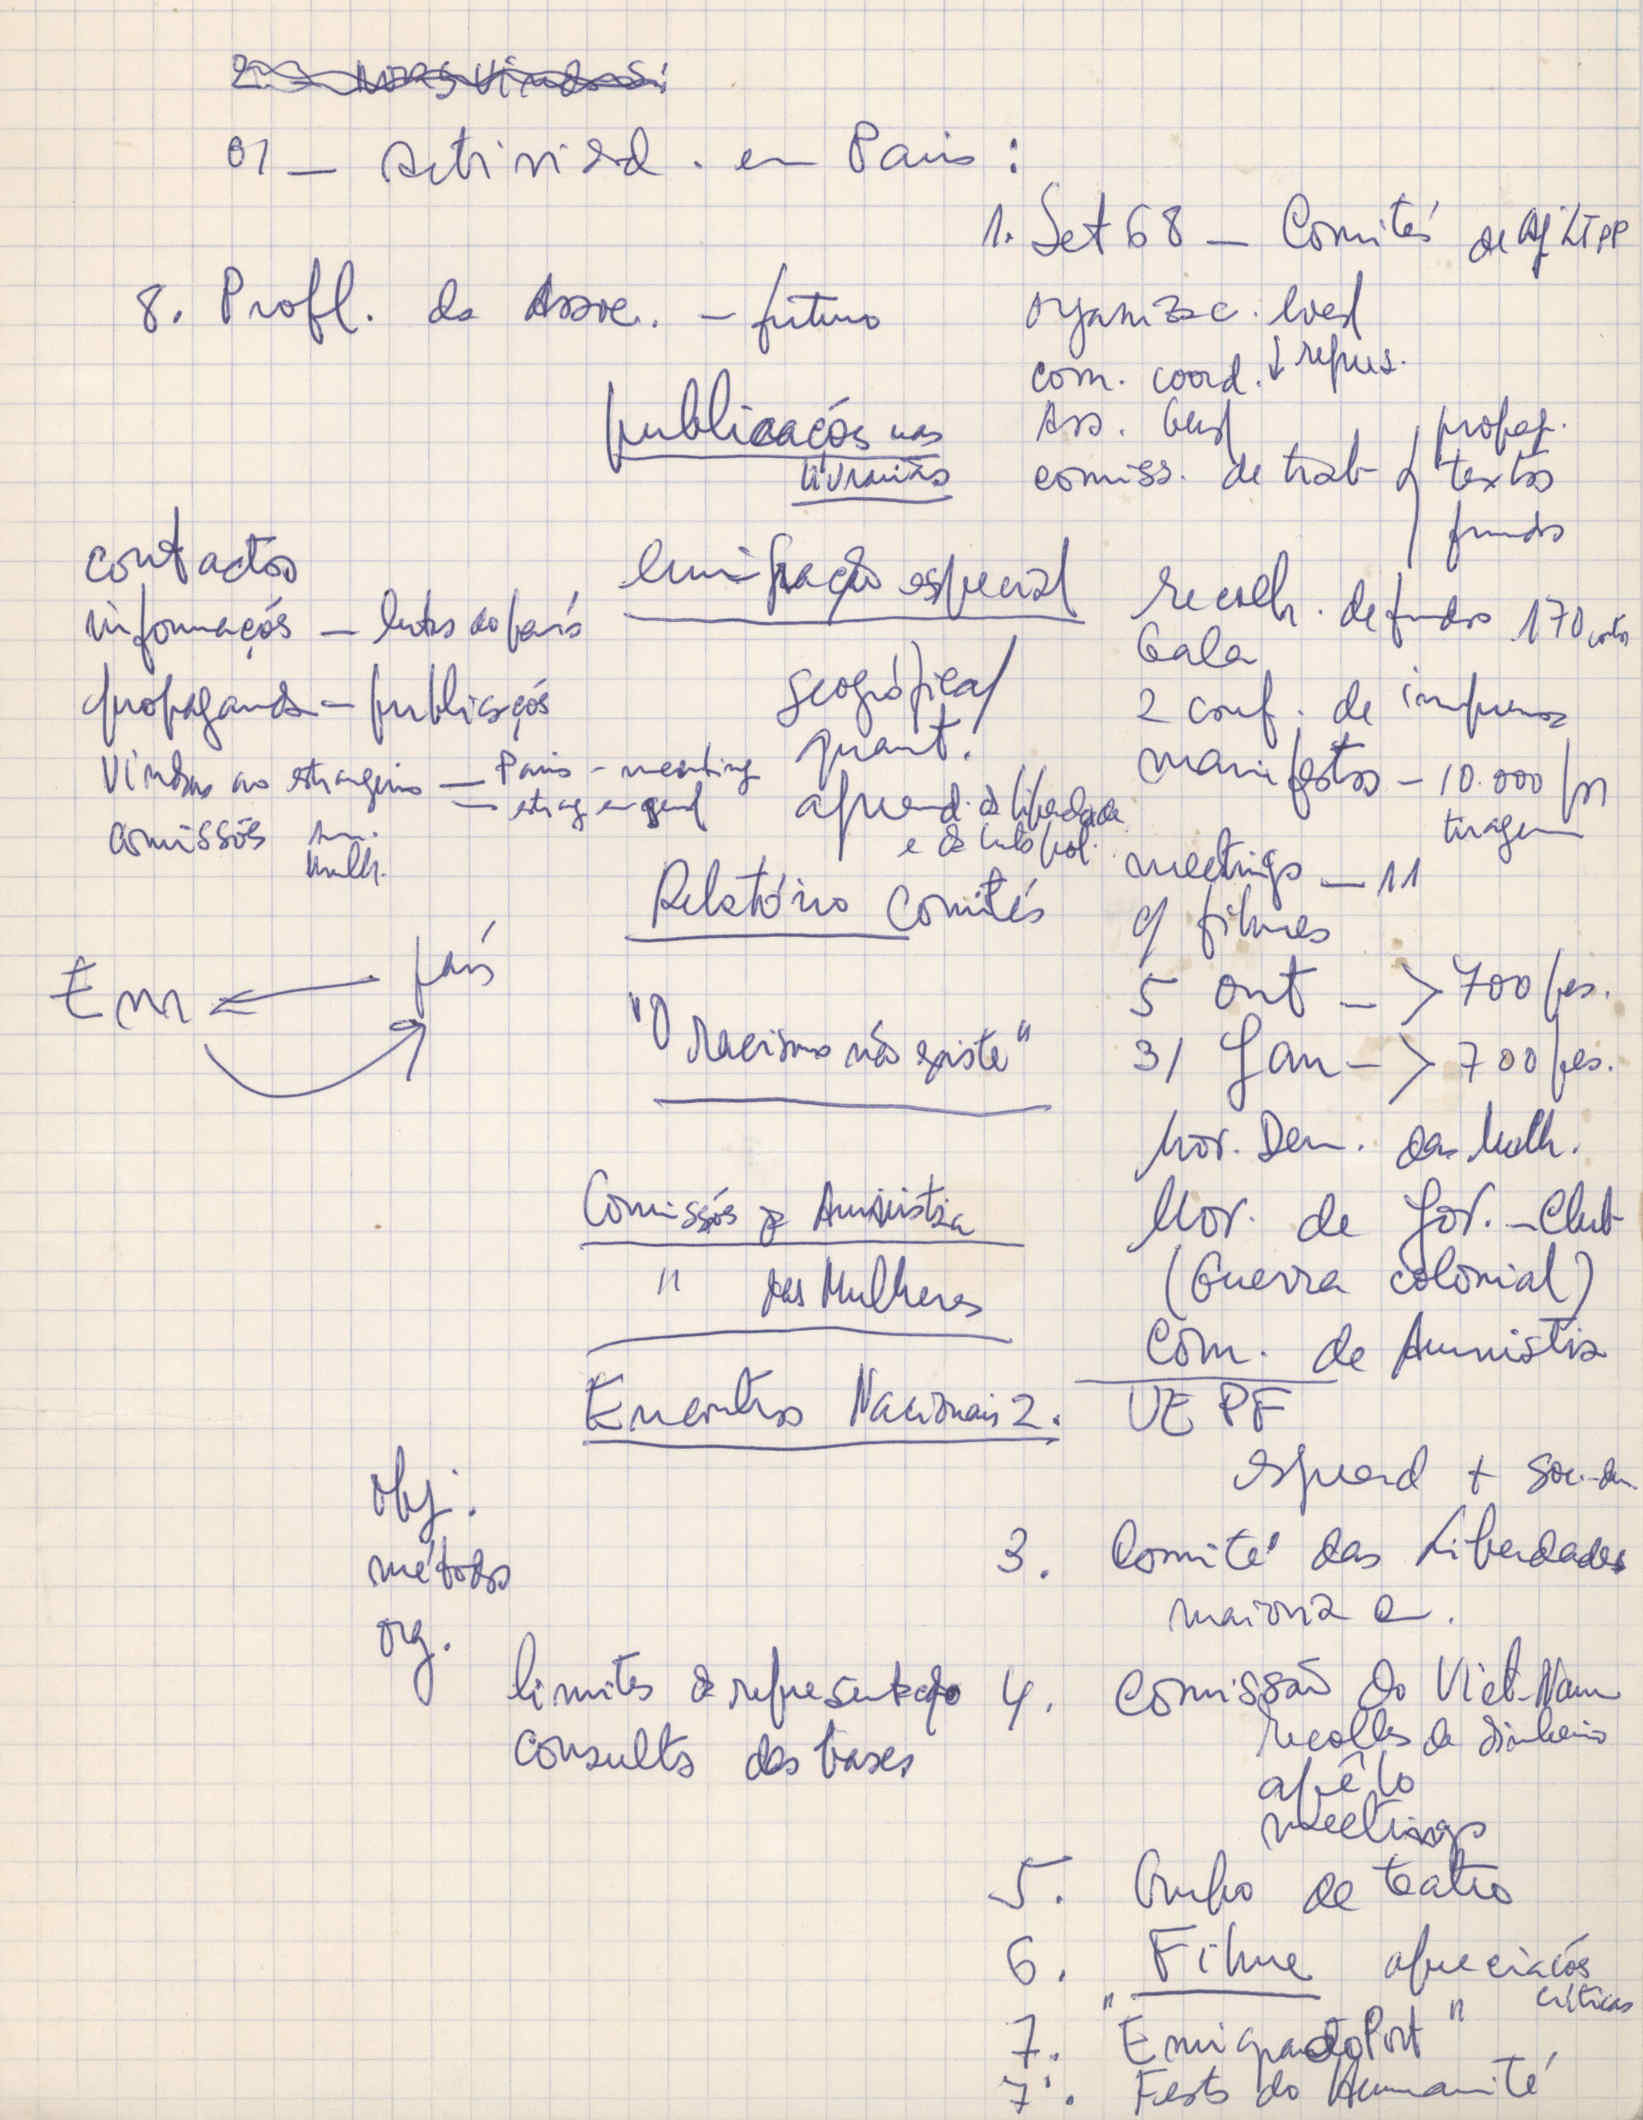 01 — Activid. em Paris :
1. Set 68 — Comités de Aj
8. Probl. da Assoc. — futuro
organizac. local
com. coord. ↓ repres.
publicações nas
livrarias
Ass. Geral
comiss. de trab
propag.
textos
fundos
contactos
informações — lutas do país
propaganda — publicações
Vindas ao estrangeiro — Paris - meeting
— estrag em geral
comissões
mulh.
Em
país
emigração especial
geográfica/
quant.
aprend. da liberdade
e da luta pol.
Relatório Comités
"O racismo não existe"
Comissões de Amnistia
" das Mulheres
Encontros Nacionais 2.
recolh. de fundos 170 contos
Gala
2 conf. de imprensa
manifestos — 10.000
tiragem
meetings — 11
c/ filmes
5 out — > 700 pes.
31 Jan — > 700 pes.
Mov. Dem. das Mulh.
Mov. de Jov. — Club
(Guerra colonial)
Com. de Amnistia
UEPF
esquerd + soc.-dem.
3. Comité das Liberdades
maioria
4. Comissão do Viet-Nam
recolha de dinheiro
apêlo
meetings
5. Grupo de teatro
6. Filme apreciações
críticas
7. "Emigrante Port"
7'. Festa do Humanité
obj.
métodos
org.
limites da representação
consulta das bases